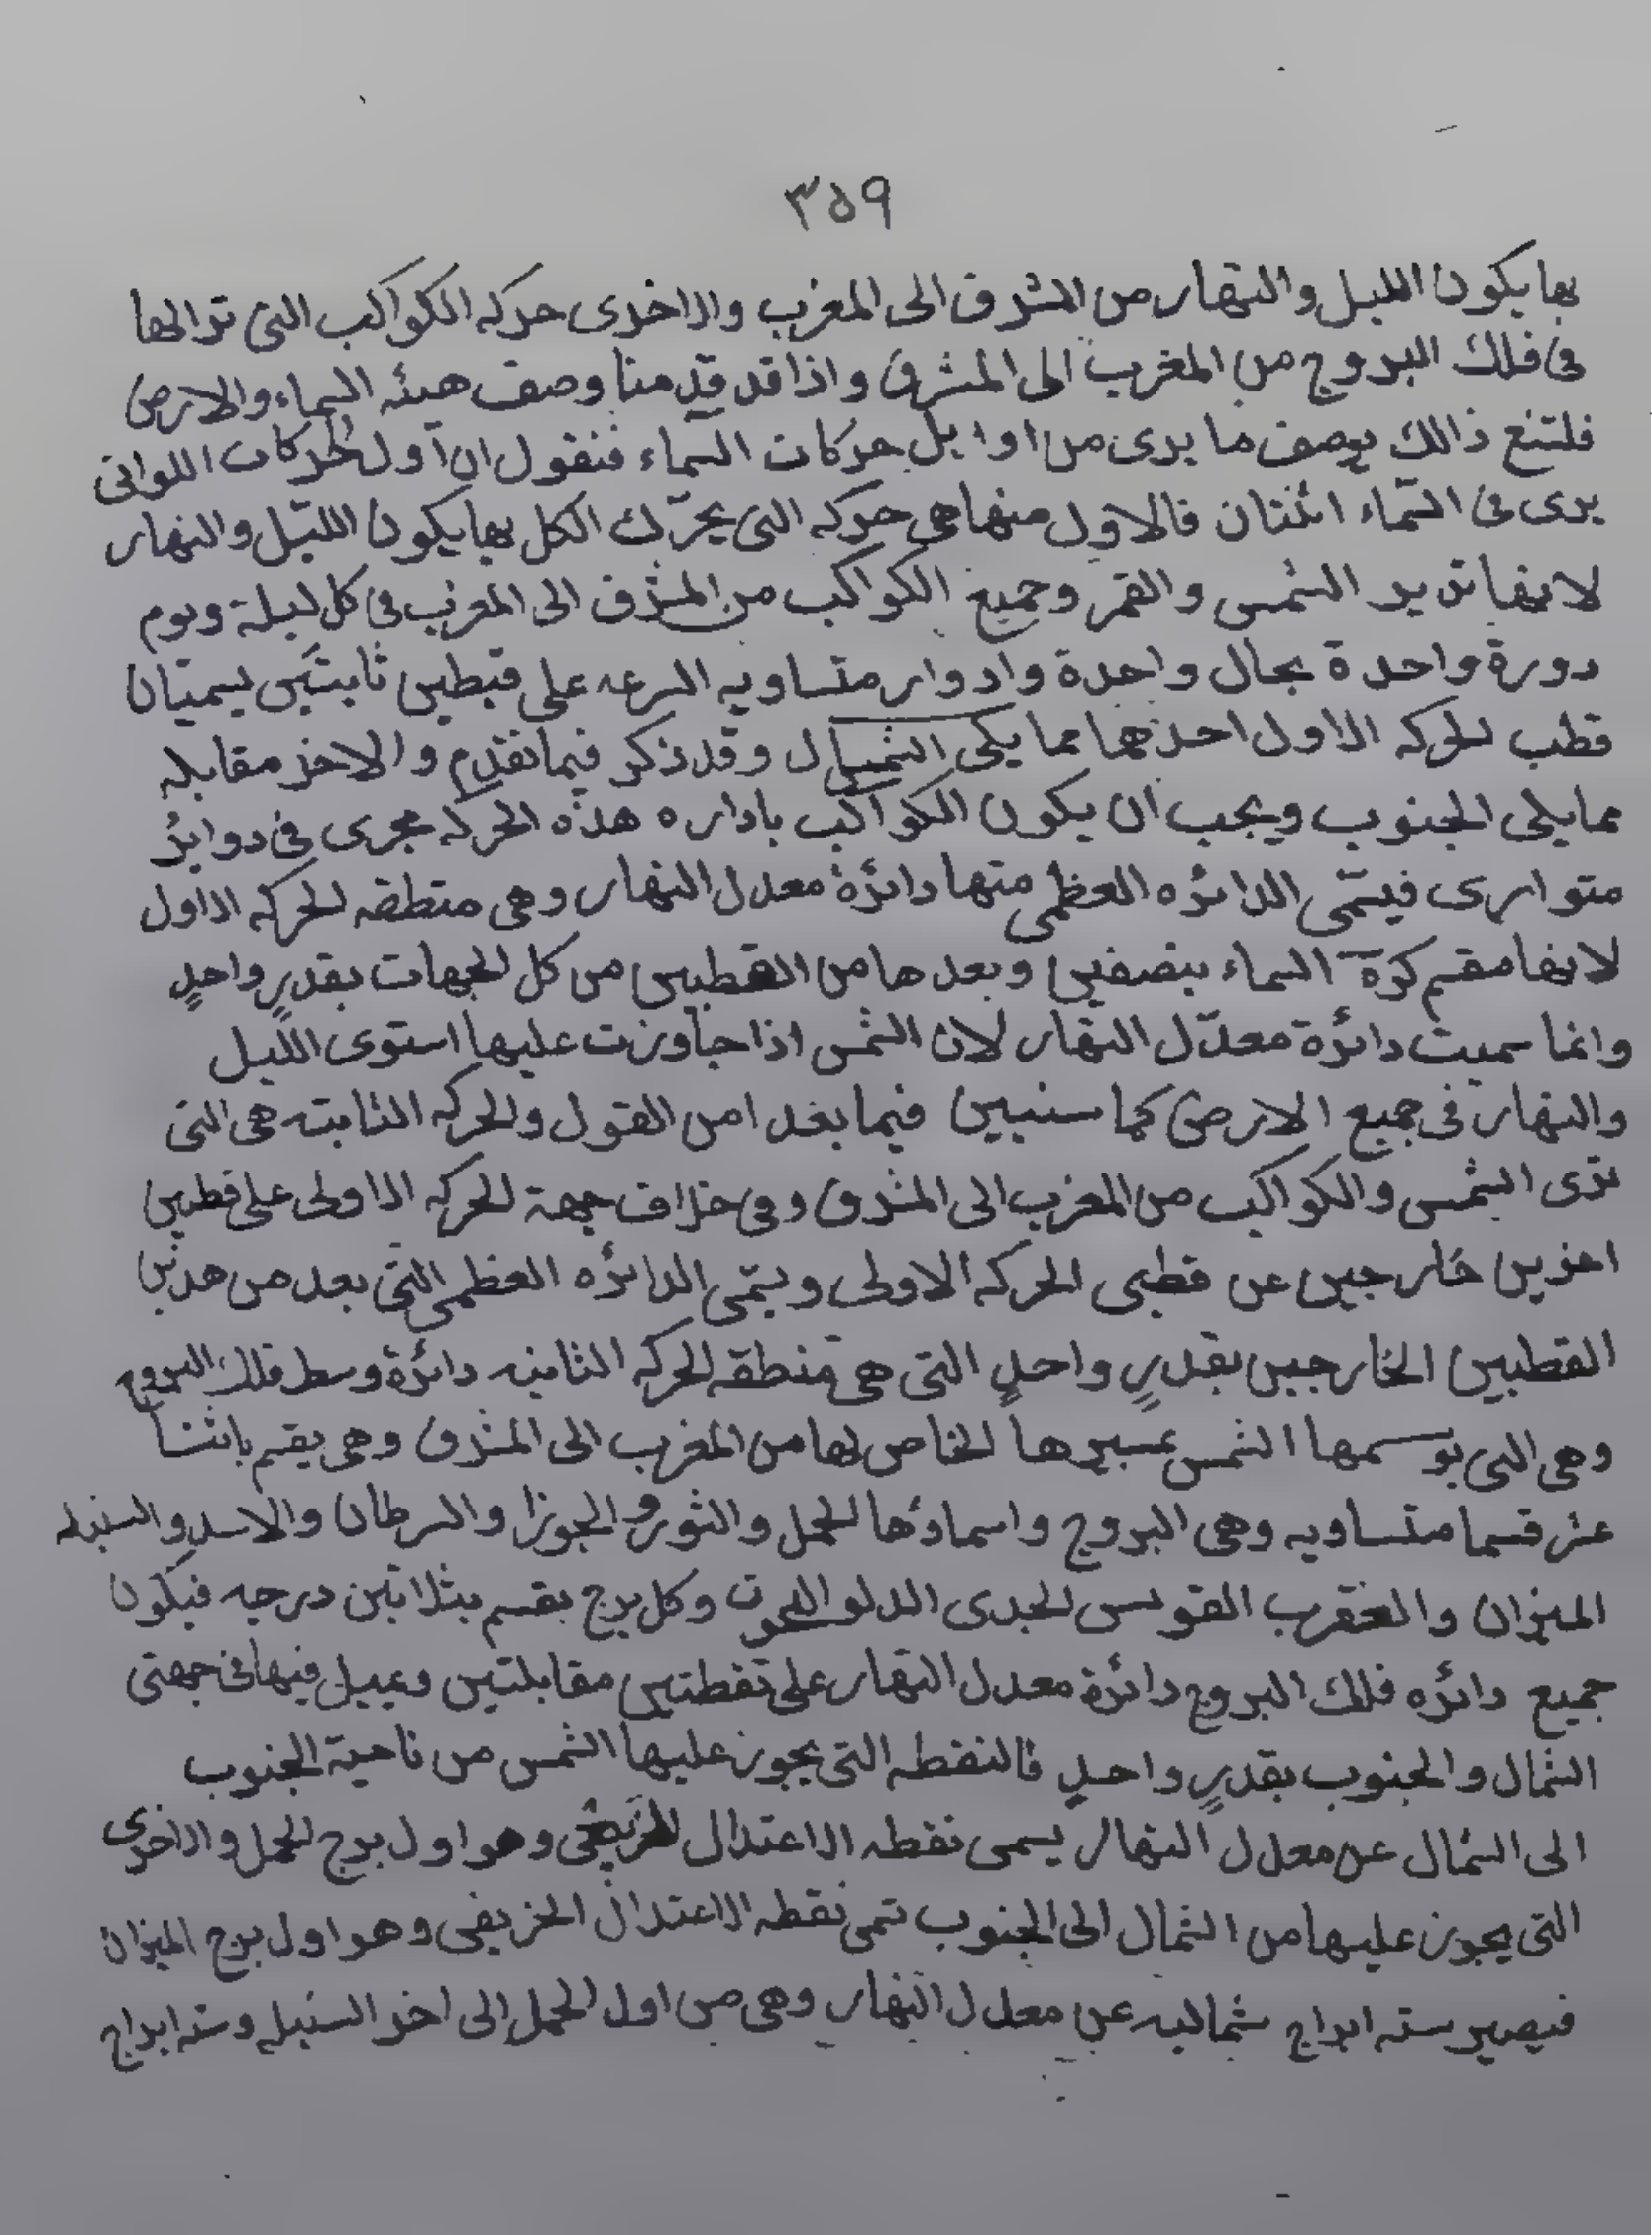 ٣٥٩
بها يكون الليل والنهار من المشرق الى المغرب والاخرى حركه الكواكب التى تراها
فى فلك البروج من المغرب الى المشرق واذا قد قدمنا وصف هيئه السماء والارض
فلنتبع ذالك بوصف ما يرى من اوايل حركات السماء فنقول ان اول الحركات اللواتى
يرى فى السّماء اثنتان فالاول منها هى حركه التى يحرّك الكل بها يكون الليّل والنهار
لانها تدير الشمس والقمر وجميع الكواكب من المشرق الى المغرب فى كل ليلة ويوم
دورة واحدة بحال واحدة وادوار متساويه السرعه على قطبين ثابتين يسميّان
قطب الحركه الاول احدهما مما يلى الشمال وقد ذكر فيما تقدم والاخر مقابله
مما يلى الجنوب ويجب ان يكون الكواكب باداره هذه الحركه مجرى فى دواير
متوازى فيسّمى الدائره العظمى منها دائرة معدل النهار وهى منطقه الحركه الاول
لانها مقسم كرة السماء بنصفين وبعدها من القطبين من كل الجهات بقدرٍ واحدٍ
وانما سميت دائرة معدّل النهار لان الشمس اذا جاوزت عليها استوى اللّيل
والنهار فى جميع الارض كما سنبين فيما بعد امن القول والحركه الثابته هى التى
ترى الشمس والكواكب من المغرب الى المشرق وفى خلاف جهة الحركه الاولى على قطبين
اخرين خارجين عن قطبى الحركه الاولى ويسّمى الدائره العظمى التى بعد من هذين
القطبين الخارجين بقدرٍ واحدٍ التى هى منطقه الحركه الثانيه دائرة وسط فلك البروج
وهى التى يرسمها الشمس بمسيرها الخاص لها من المغرب الى المشرق وهى يقسم باثنتا
عشر قسما متساويه وهى البروج واسماؤها الحمل والثور والجوزا والسرطان والاسد والسنبله
الميزان والعقرب القوس الجدى الدلو الحوت وكل برج يقسم بثلاثين درجه فيكون
جميع دائره فلك البروج دائرة معدل النهار على نقطتين مقابلتين ويميل فيها فى جهتى
الشمال والجنوب بقدرٍ واحدٍ فالنقطه التى يجوز عليها الشمس من ناحية الجنوب
الى الشمال عن معدل النهار يسمى نقطه الاعتدال الربيعى وهو اول برج الحمل والاخرى
التى يجوز عليها من الشمال الى الجنوب تسمى نقطه الاعتدال الخريفى وهو اول برج الميزان
فيصير سته ابراج شماليه عن معدل النهار وهى من اول الحمل الى اخر السنبله وسته ابراج